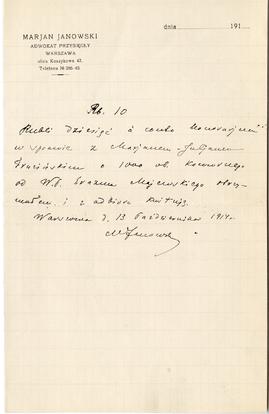 MARJAN JANOWSKI
ADWOKAT PRZYSIĘGŁY
WARSZAWA
ulica Koszykowa 43.
Telefonu №
dnia 191
Rb. 10
Rubli dziesięć à conto honorarjum
w sprawie z Marjanem-Juljanem
o 1000 rb.
od W.P. Erazma Majewskiego otrzy-
małem i z odbioru kwituję.
Warszawa d. 13 Października 1914 r.
MJanowski